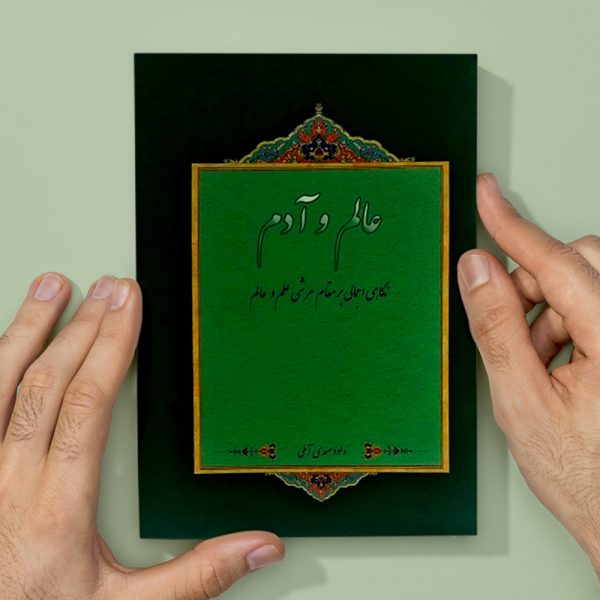 عالم و آدم
نگاهی اجمالی بر مقام عرشی علم و عالم
داود صمدی آملی